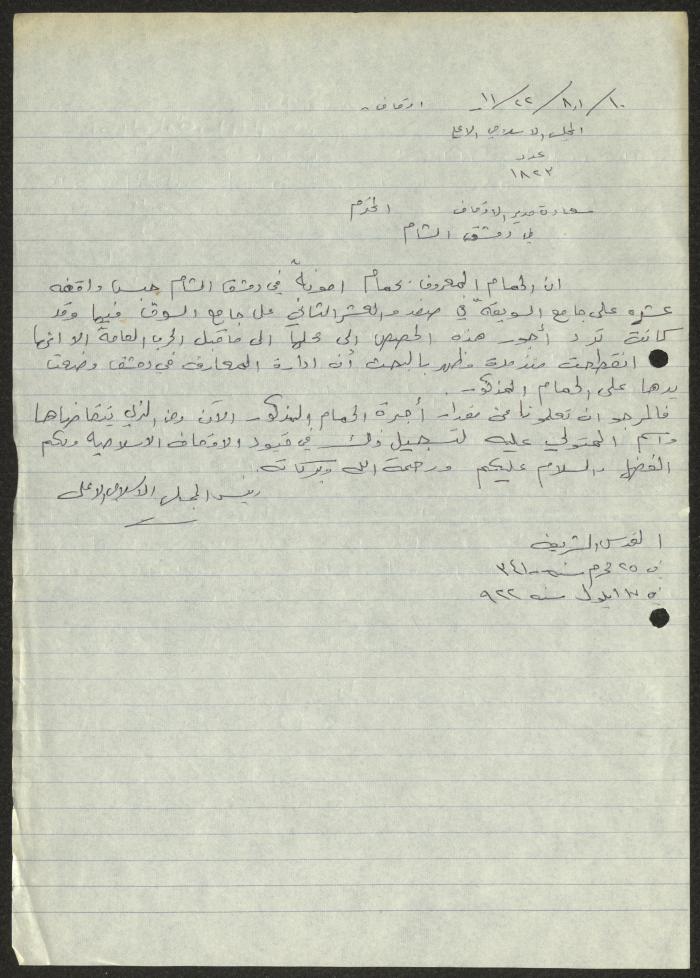 ١٠/٨,١/٢٢/١١ اوقاف
المجلس الاسلامي الاعلى
عدد
١٨٢٣
سعادة مدير الاوقاف المحترم
في دمشق الشام
ان الحمام المعروف بحمام في دمشق الشام حبس واقفه
عشره على جامع السويقة في صفد والعشر الثاني على جامع السوق فيها وقد
كانت ترد أجور هذه الحصص الى محلها الى ما قبل الحرب العامة الا انها
انقطعت منذ مدة وظهر بالبحث أن ادارة المعارف في دمشق وضعت
يدها على الحمام المذكور.
فالمرجو ان تعلمونا عن مقدار أجرة الحمام المذكور الآن ومن الذي يتقاضاها
واسم المتولي عليه لتسجيل ذلك في قيود الاوقاف الاسلامية ولكم
الفضل والسلام عليكم ورحمة الله وبركاته.
رئيس المجلس الاسلامي الاعلى
القدس الشريف
في ٢٥ محرم سنة ٣٤١
في ١٧ ايلول سنه ٩٢٢